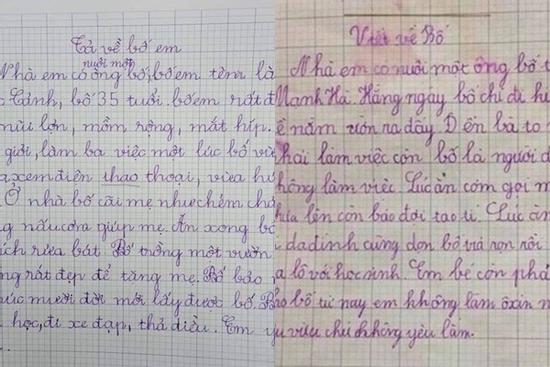 Tả về bố em
nuôi một
Nhà em có ông bố, bố em tên là
Cảnh, bố 35 tuổi. bố em rất đ
mũi lợn, mồm rộng, mắt híp.
giỏi, làm ba việc một lúc bố vừa
xem điện thao thoại, vừa hu
Ở nhà bố cãi mẹ như chém chả
g nấu cơm giúp mẹ. Ăn xong bố
ích rửa bát. Bố trồng một vườn
ng rất đẹp để tặng mẹ. Bố bảo
úc mười đời mới lấy được bố. Bả
học, đi xe đạp, thả diều. Em y
Viết về Bố
Nhà em có nuôi một ông bố t
Mạnh Hà. Hằng ngày bố chỉ đi hu
ề nằm ườn ra đấy. D ến bà to
hải làm việc còn bố là người d
hông làm việc. Lúc ăn cơm gọi m
hứa lên còn bảo đợi tao tí. Lúc ăn
i dadinh cùng dọn bố trả nọn nồi
a lô với học sinh. Em bé còn phả
bảo bố từ nay em không làm ôxin n
yu vừu chứ không yêu lắm.